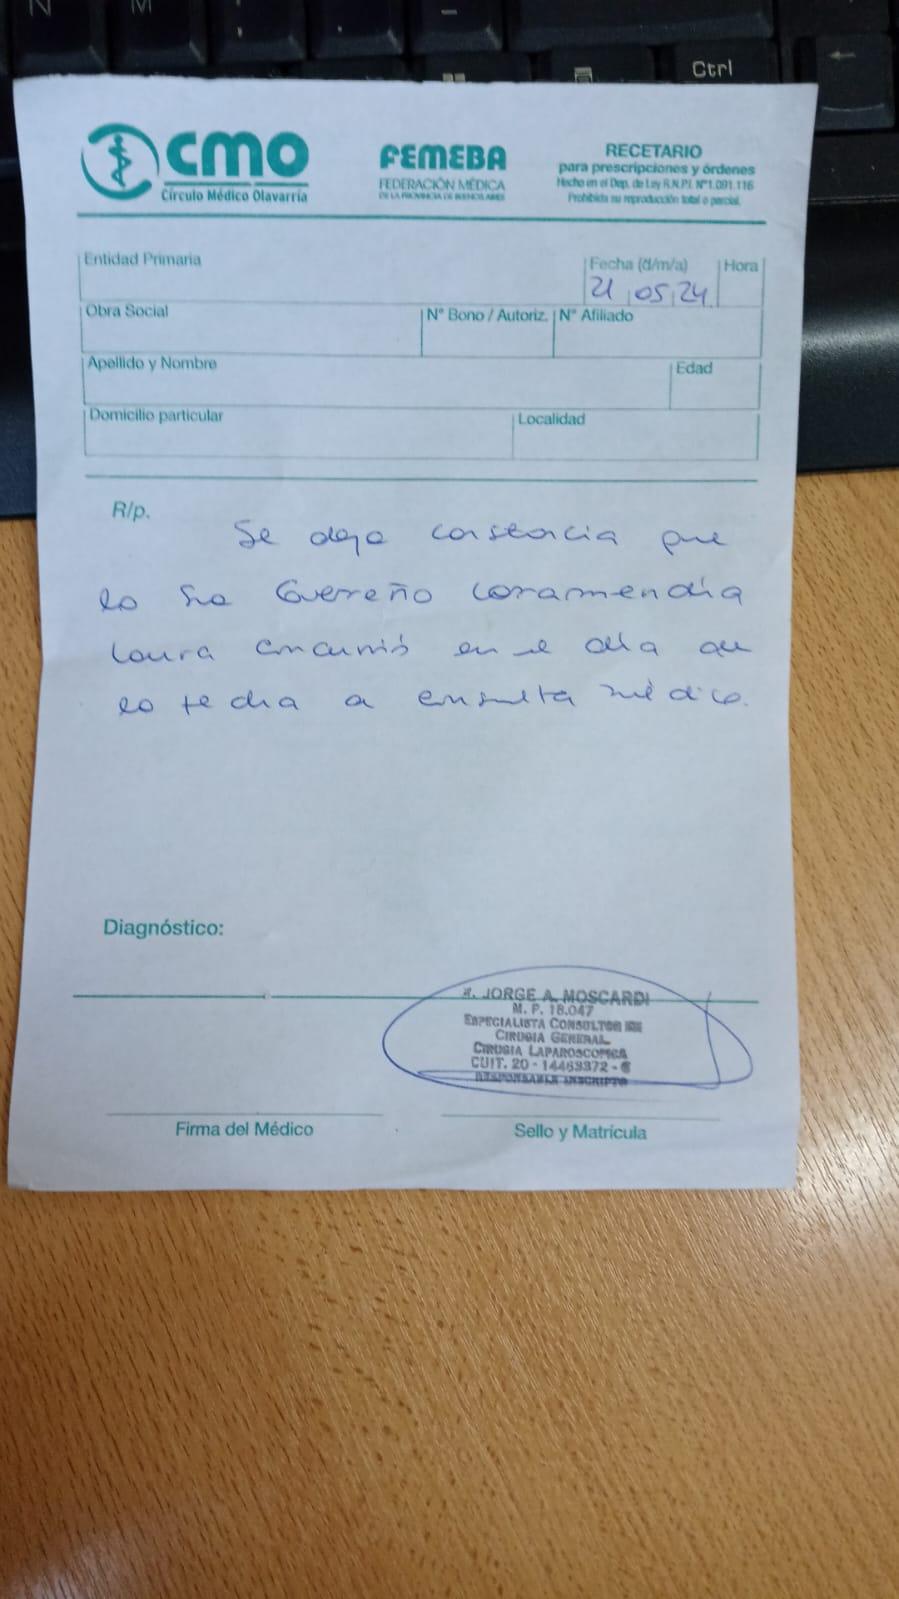 Ctrl
cmo
Círculo Médico Olavarría
FEMEBA
FEDERACIÓN MÉDICA
DE LA PROVINCIA DE BUENOS AIRES
RECETARIO
para prescripciones y órdenes
Hecho en el Dep. de Ley R.N.P.I. Nº1.091.116
Prohibida su reproducción total o parcial.
Entidad Primaria
Fecha (d/m/a) Hora
21 05 24
Obra Social Nº Bono / Autoriz. Nº Afiliado
Apellido y Nombre Edad
Domicilio particular Localidad
R/p.
Se deja constancia que
la Sra Guerreño Loramendia
Laura concurrió en el día de
la fecha a consulta médica.
Diagnóstico:
JORGE A. MOSCARDI
M. P. 18.047
ESPECIALISTA CONSULTOR EN
CIRUGIA GENERAL
CIRUGIA LAPAROSCOPICA
CUIT. 20 - 14463372 - 6
RESPONSABLE INSCRIPTO
Firma del Médico Sello y Matrícula